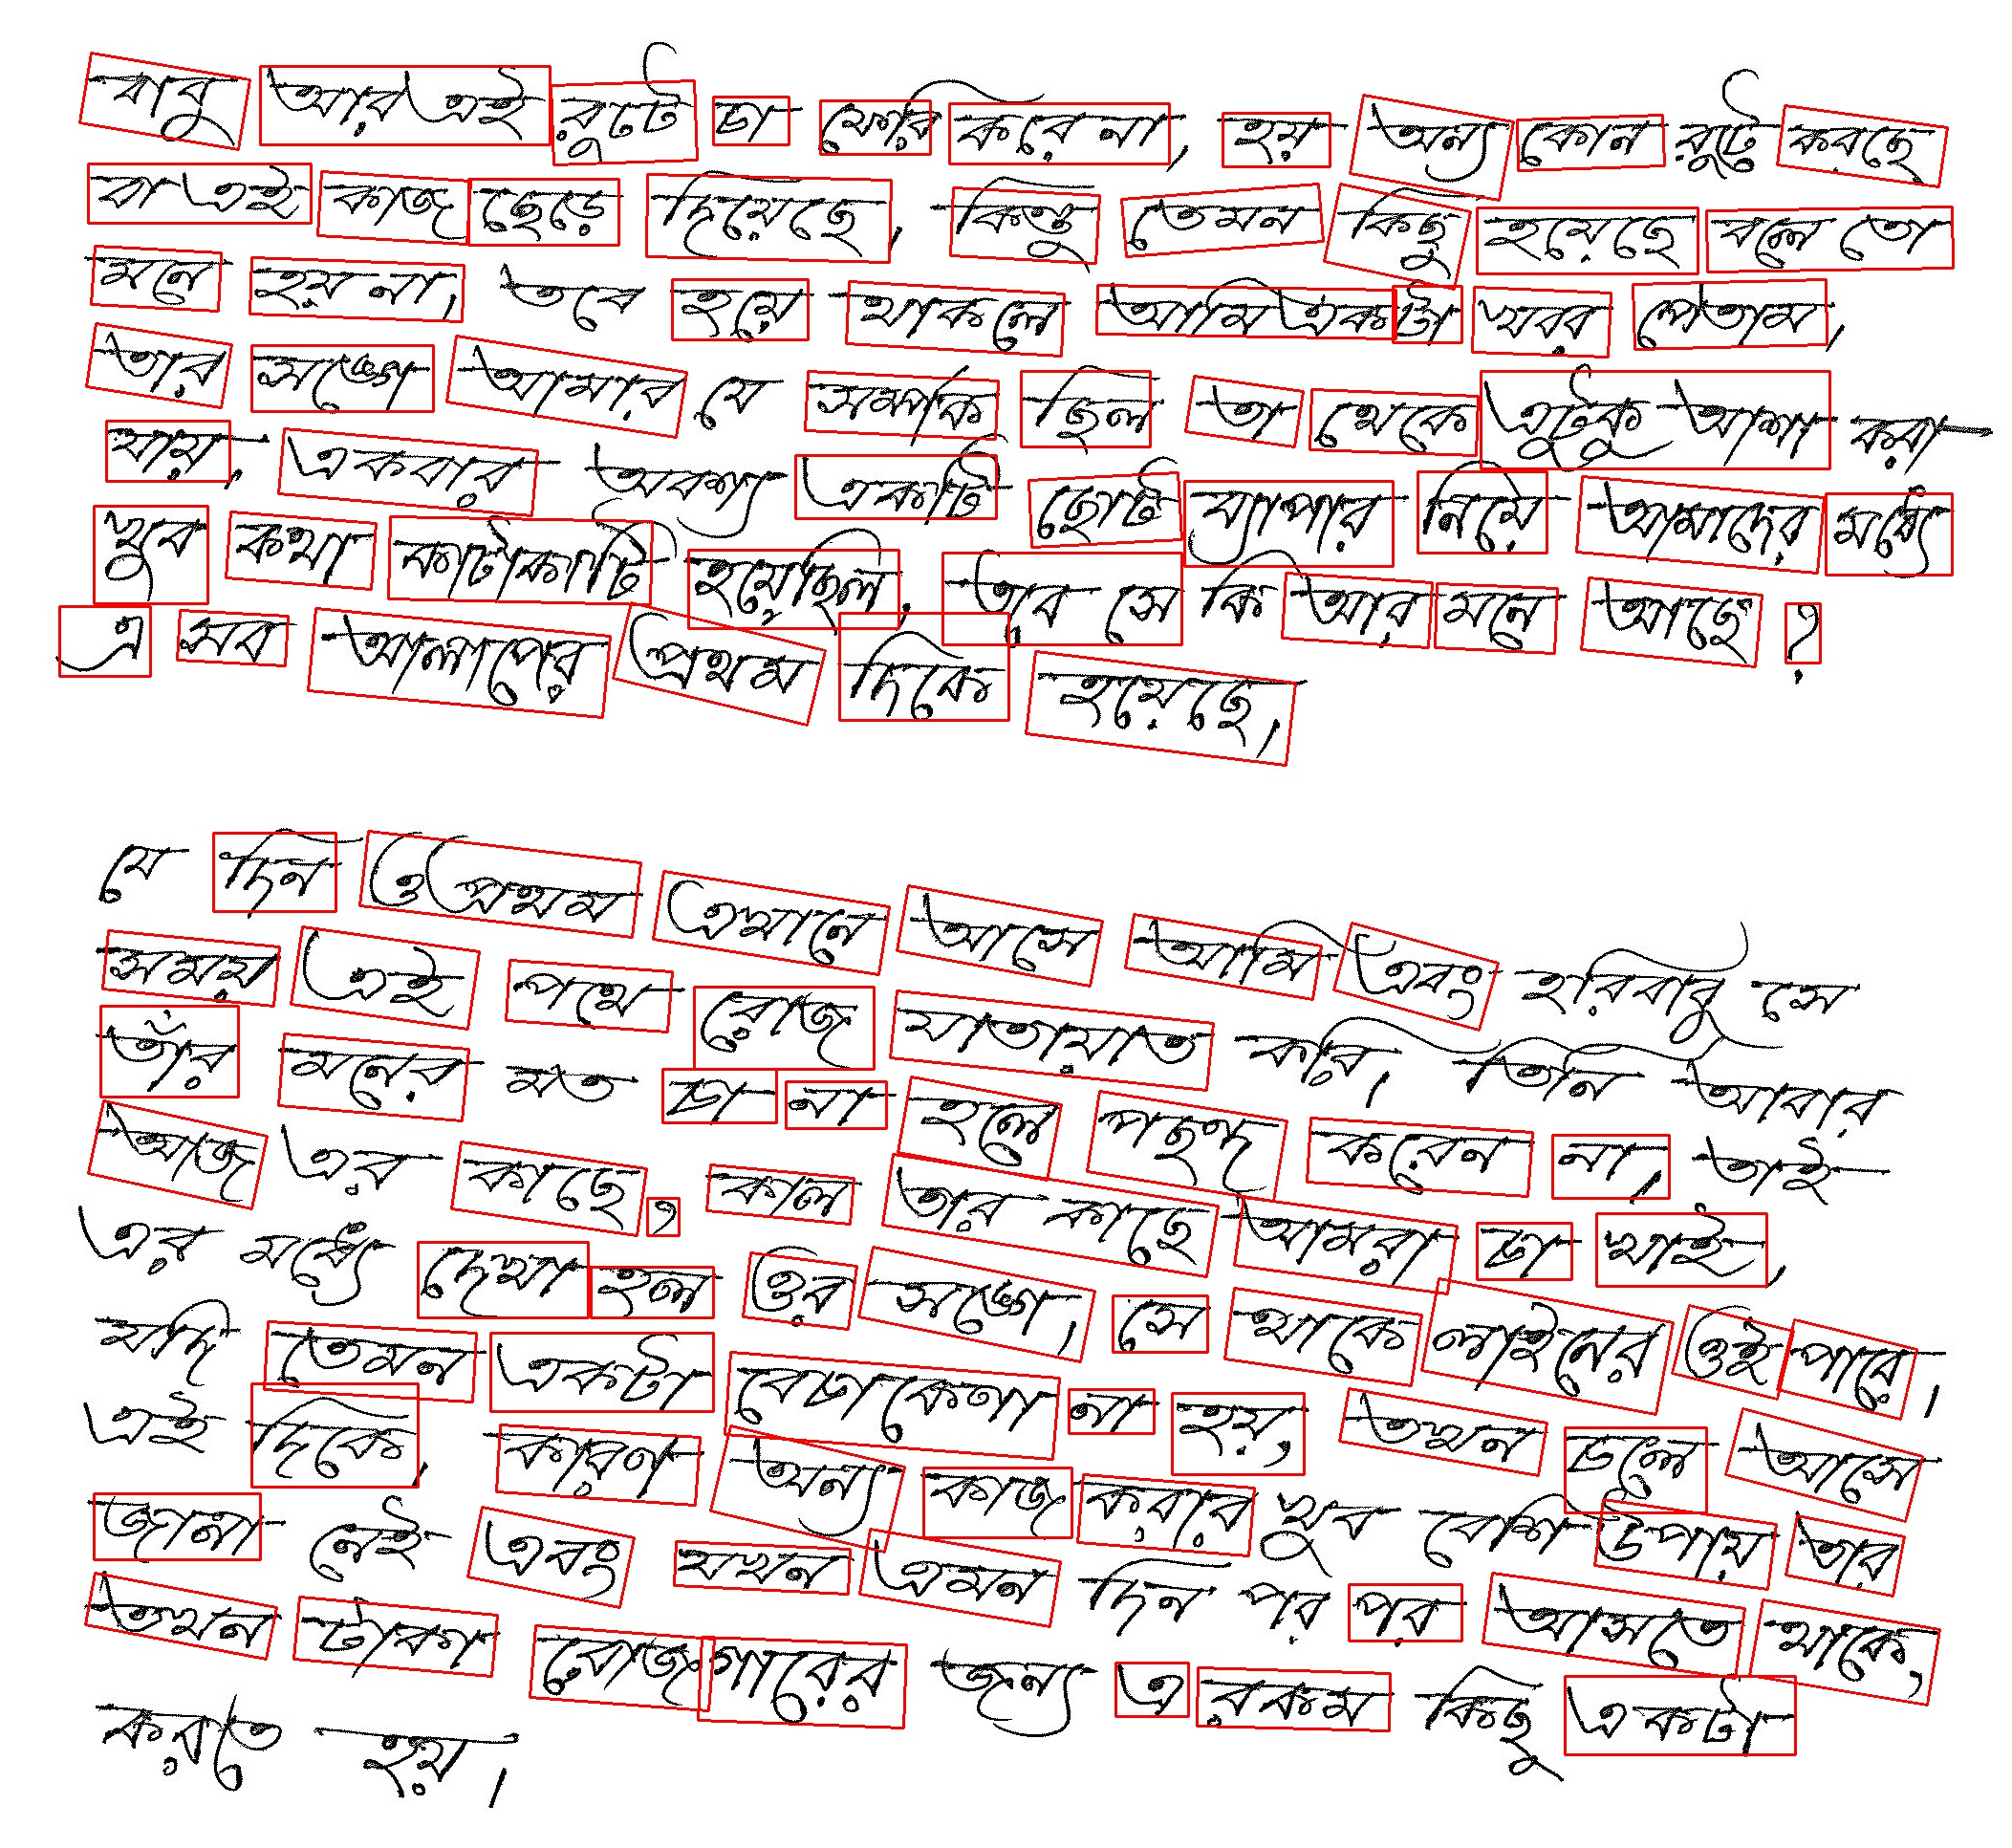 বাবু আর এই রুটে চা ফেরি করে না, হয় অন্য কোন রুটে করছে
বা এই কাজ ছেড়ে দিয়েছে। কিন্তু তেমন কিছু হয়েছে বলে তো
মনে হয় না। তবে হয়ে থাকলে আমি একটা খবর পেতাম।
তার সঙ্গে আমার যে সম্পর্ক ছিল তা থেকে এটুকু আশা করা
যায়। একবার অবশ্য একটি ছোট ব্যাপার নিয়ে আমাদের মধ্যে
খুব কথা কাটাকাটি হয়েছিল। তার সে কি আর মনে আছে?
এ সব আলাপের প্রথম দিকে হয়েছে।
যে দিন ও প্রথম এখানে আসে আমি এবং হরিবাবু সে
সময় এই পথে রোজ যাতায়াত করি। তিনি আবার
তাঁর মনের মত চা না হলে পছন্দ করেন না। তাই
আজ এর কাছে, কাল তার কাছে আমরা চা খাই।
এর মধ্যে দেখা হল ওর সঙ্গে। সে থাকে লাইনের ওই পারে।
যদি তেমন একটা বেচাকেনা না হয়, তখন চলে আসে
এই দিকে। কারণ অন্য কাজ করার খুব বেশি উপায় তার
জানা নেই এবং যখন এমন দিন পর পর আসতে থাকে,
তখন টাকা রোজগারের জন্য এ রকম কিছু একটা
করতে হয়।